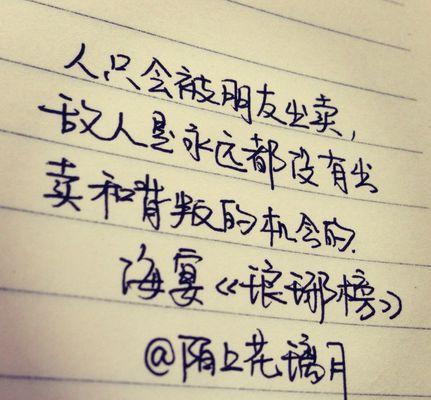 人只会被朋友出卖,
敌人是永远都没有出
卖和背叛的机会的.
海宴《琅琊榜》
@陌上花璃月